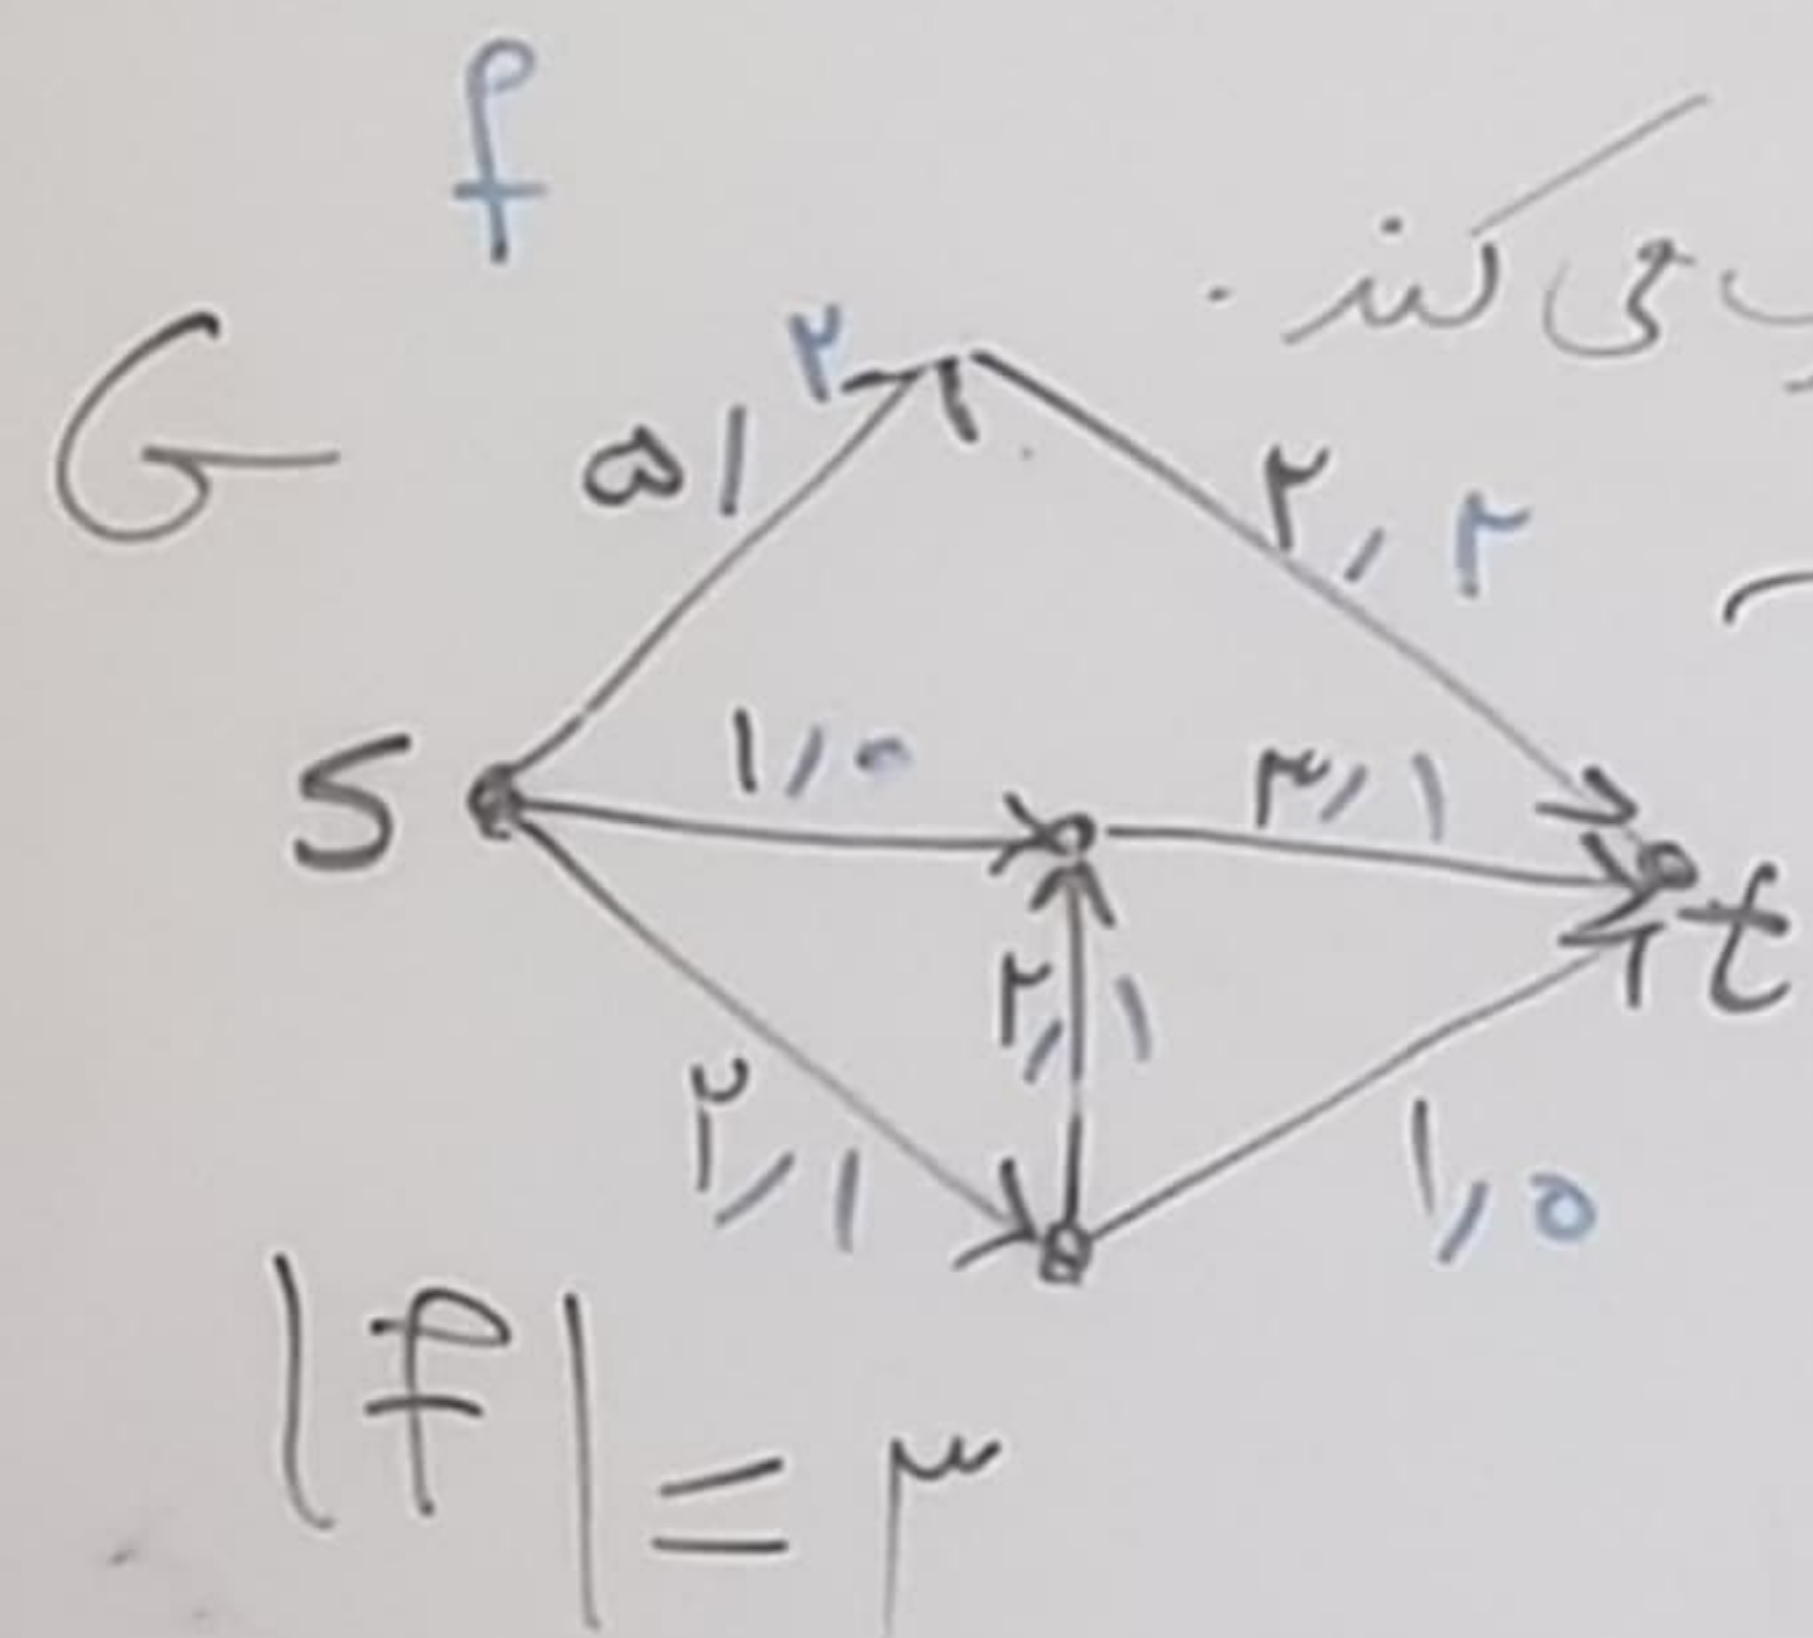 f
می کند.
G
۵, ۲
۲, ۲
S
۱, ۰
۳, ۱
t
۲, ۱
۲, ۱
۱, ۰
|f| = ۳